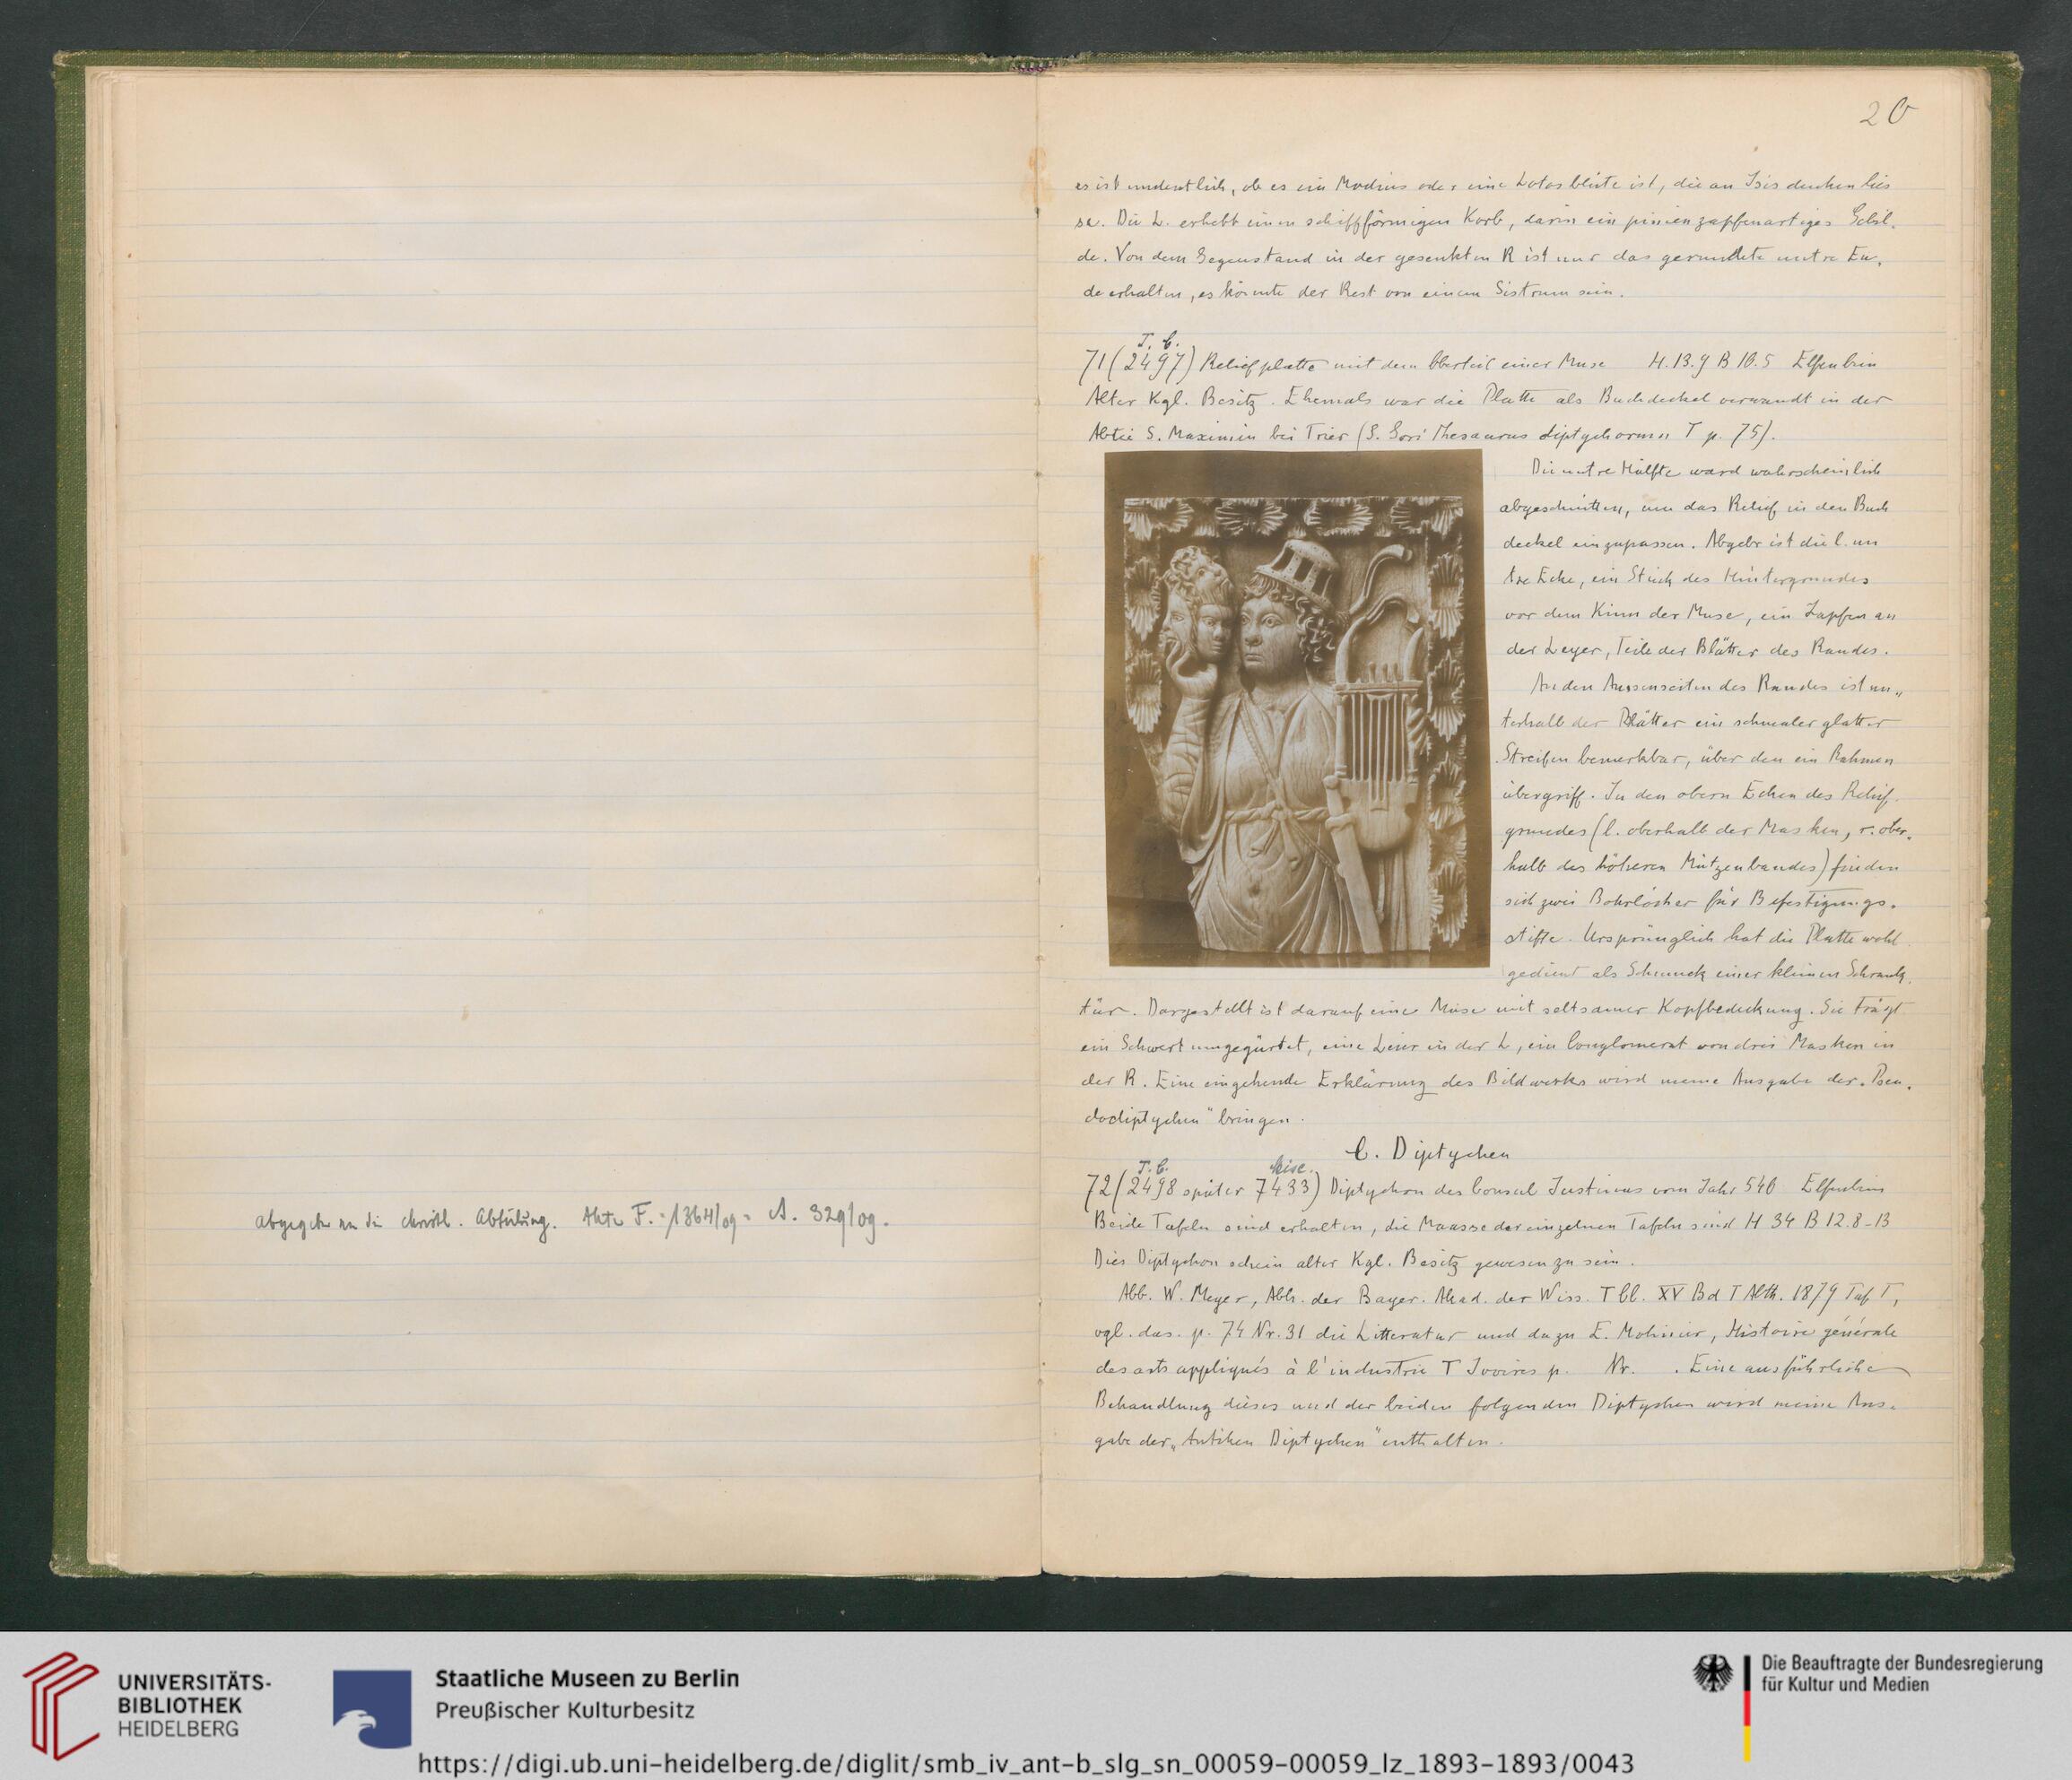 abgegeben an die christl. Abteilung. Akte F. 1364/09 = A. 329/09.
20
es ist undeutlich, ob es ein Modius oder eine Lotosblüte ist, die an Isis denken lies
se. Die L. erhebt einen schiffförmigen Korb, darin ein pinienzapfenartiges Gebil-
de. Von dem Gegenstand in der gesenkten R ist nur das gerundete untre En-
de erhalten, es könnte der Rest von einem Sistrum sein.
T. C.
71 (2497) Reliefplatte mit dem Oberteil einer Muse H. 13.9 B 10.5 Elfenbein
Alter Kgl. Besitz. Ehemals war die Platte als Buchdeckel verwandt in der
Abtei S. Maximin bei Trier (S. Gori Thesaurus diptychorum I p. 75).
Die untre Hälfte ward wahrscheinlich
abgeschnitten, um das Relief in den Buch
deckel einzupassen. Abgebr ist die l. un
tre Ecke, ein Stück des Hintergrundes
vor dem Kinn der Muse, ein Zapfen an
der Leyer, Teile der Blätter des Randes.
An den Aussenseiten des Randes ist un-
terhalb der Blätter ein schmaler glatter
Streifen bemerkbar, über den ein Rahmen
übergriff. In den obern Ecken des Relief-
grundes (l. oberhalb der Masken, r. ober-
halb des höheren Mützenbandes) finden
sich zwei Bohrlöcher für Befestigungs-
stifte. Ursprünglich hat die Platte wohl
gedient als Schmuck einer kleinen Schrank-
tür. Dargestellt ist darauf eine Muse mit seltsamer Kopfbedeckung. Sie trägt
ein Schwert umgegürtet, eine Leier in der L, ein Conglomerat von drei Masken in
der R. Eine eingehende Erklärung des Bildwerks wird meine Ausgabe der „Pseu-
dodiptychen" bringen.
C. Diptychen
T. C.
72 (2498 später 7433) Diptychon des Consul Justinus vom Jahr 540 Elfenbein
Beide Tafeln sind erhalten, die Maasse der einzelnen Tafeln sind H 34 B 12.8-13
Dies Diptychon schein alter Kgl. Besitz gewesen zu sein.
Abb. W. Meyer, Abh. der Bayer. Akad. der Wiss. I Cl. XV Bd I Abth. 1879 Taf I,
vgl. das. p. 74 Nr. 31 die Litteratur und dazu E. Molinier, Histoire générale
des arts appliqués à l'industrie I Ivoires p. Nr. . Eine ausführliche
Behandlung dieses und der beiden folgenden Diptychen wird meine Aus-
gabe der „Antiken Diptychen" enthalten.
UNIVERSITÄTS-
BIBLIOTHEK
HEIDELBERG
Staatliche Museen zu Berlin
Preußischer Kulturbesitz
Die Beauftragte der Bundesregierung
für Kultur und Medien
https://digi.ub.uni-heidelberg.de/diglit/smb_iv_ant-b_slg_sn_00059-00059_lz_1893-1893/0043